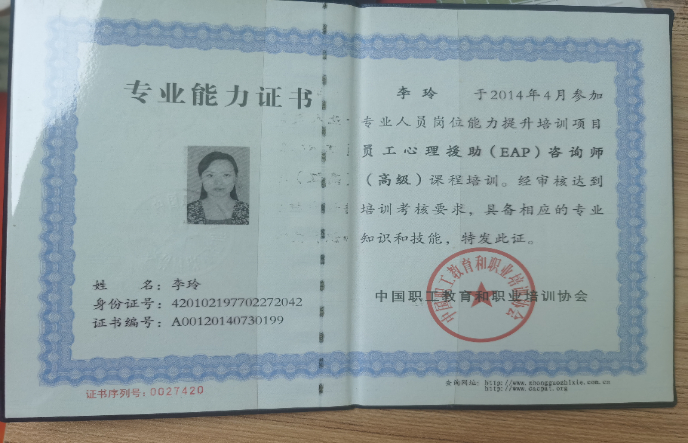 专业能力证书
姓 名：李玲
身份证号：420102197702272042
证书编号：A00120140730199
证书序列号：0027420
李玲 于2014年4月参加
专业人员岗位能力提升培训项目
员工心理援助（EAP）咨询师
（高级）课程培训。经审核达到
培训考核要求，具备相应的专业
知识和技能，特发此证。
中国职工教育和职业培训协会
中国职工教育和职业培训协会
查询网址：